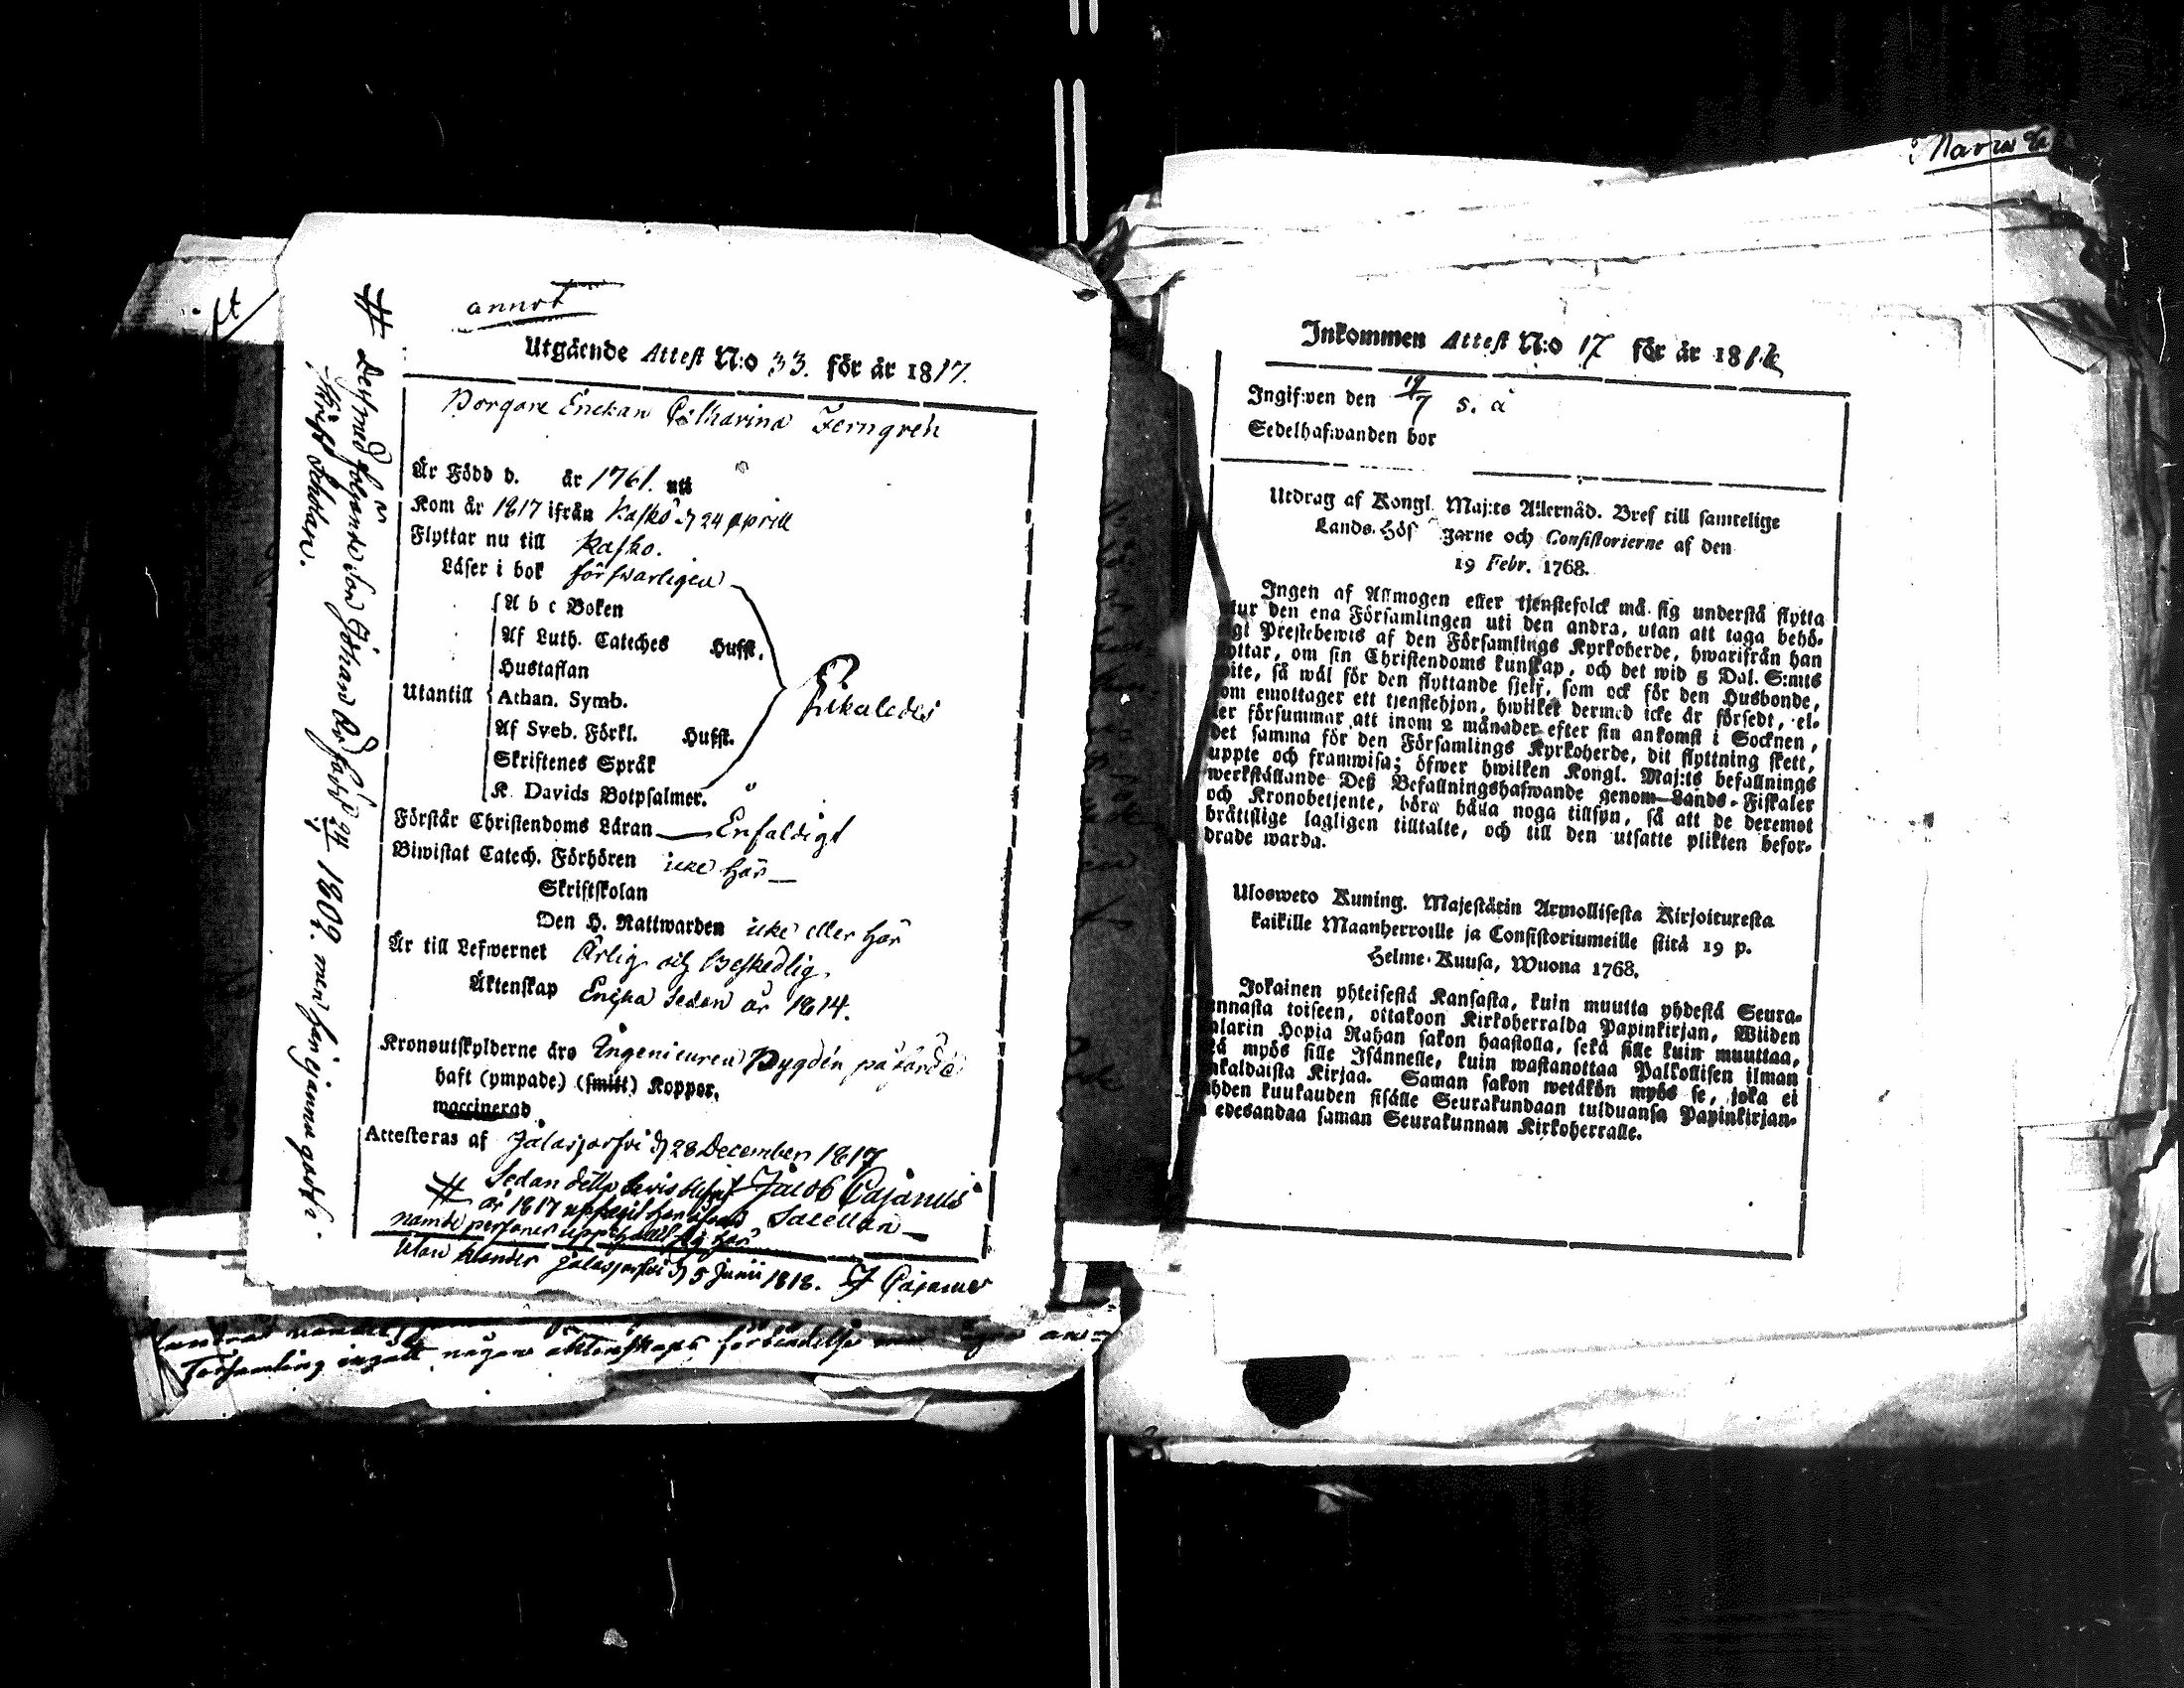 annot
Utgående Attest N:o 33. för år 1817.
Borgare Enckan Catharina Jerngren
Är Född d. år 1761. uti
Kom år 1817 ifrån Kasko d 24 Aprill
Flyttar nu till Kasko.
Läser i bok försvarligen
Utantill
A b c Boken
Af Luth. Cateches Husst.
Hustaflan
Athan. Symb.
Af Sveb. Förkl. Husst.
Skriftenes Språk
K. Davids Botpsalmer.
likaledes
Förstår Christendoms Läran Enfaldigt
Biwistat Catech. Förhören icke här
Skriftskolan
Den H. Nattwarden icke eller här
Är till Lefwernet Ärlig och Beskedlig
Äktenskap Enka sedan år 1814.
Kronoutskylderne äro Ingenieuren Nygdén påförde
haft (ympade) (smitt) Koppor.
waccinerad
Attesteras af Jalasjärfvi d 28 December 1817
Jacob Cajanus
Sacellan
# Sedan detta bevis blifvit
år 1817
nämde personer uppehållit sig här
utan Jalasjärfvi d 5 Junii 1818. J Cajanus
# Dessutom följande Son Johan är född 24 1809. men han ej ännu gådt i
Skrift Scholan.
Församling ingått någon äktenskaps förbindelse
Inkommen Attest N:o 17 för år 181
Ingifwen den 19/7 s. å
Sedelhafwanden bor
Utdrag af Kongl. Maj:ts Allernåd. Bref till samtelige
Lands-Höf garne och Consistorierne af den
19 Febr. 1768.
Ingen af Allmogen eller tjenstefolck må sig understå flytta
utur den ena Församlingen uti den andra, utan att taga behö-
igt Prestebewis af den Församlings Kyrkoherde, hwarifrån han
flyttar, om sin Christendoms kunskap, och det wid 5 Dal. S:mts
wite, så wäl för den flyttande sjelf, som ock för den Husbonde,
som emottager ett tjenstehjon, hwilket dermed icke är försedt, el-
ler försummar att inom 2 månader efter sin ankomst i Socknen,
det samma för den Församlings Kyrkoherde, dit flyttning skett,
uppte och framwisa; öfwer hwilken Kongl. Maj:ts befallnings
werkställande Deß Befallningshafwande genom Lands-Fiskaler
och Kronobetjente, böra hålla noga tillsyn, så att de deremot
bråttslige lagligen tilltalte, och till den utsatte plikten befor-
drade warda.
Uloswcto Kuning. Majestätin Armollisesta Kirjoituxesta
kaikille Maanherroille ja Consistoriumeille siitä 19 p.
Helme-Kuusa, Wuona 1768.
Jokainen yhteisestä Kansasta, kuin muutta yhdestä Seura-
unnasta toiseen, ottakoon Kirkoherralda Papinkirjan, Wiiden
alarin Hopia Rahan sakon haastolla, sekä sille kuin muuttaa,
kä myös sille Isännelle, kuin wastanottaa Palkollisen ilman
akaldaista Kirjaa. Saman sakon wetäkön myös se, joka ei
ahden kuukauden sisälle Seurakundaan tulduansa Papinkirjan-
edesandaa saman Seurakunnan Kirkoherralle.